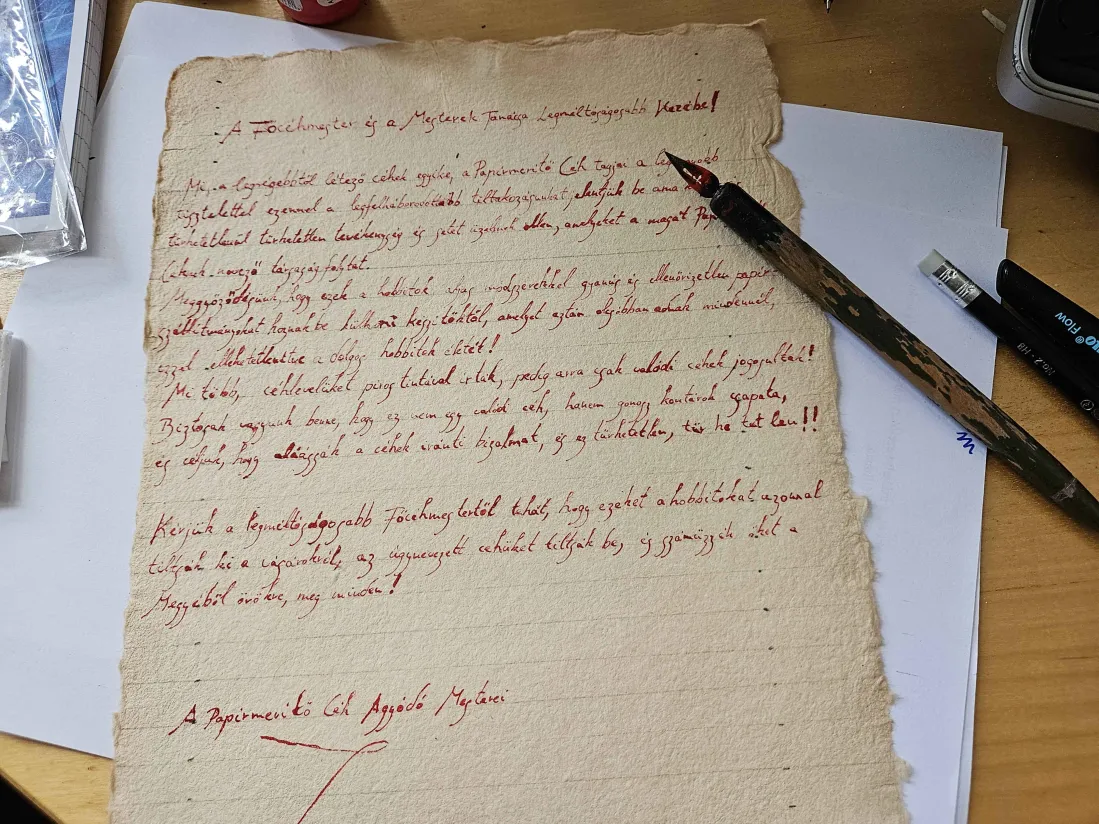 A Főcéhmester és a Mesterek Tanácsa Legméltóságosabb Kezébe!
Mi, a legrégebbtől létező céhek egyike, a Papírmerítő Céh tagjai a
tisztelettel ezennel a legfelháborodottabb tiltakozásunkat jelentjük be ama
tűrhetetlenül tűrhetetlen tevékenység és jelet üzelmek ellen, amelyeket a magát
Céhnek nevező társaság folytat.
Meggyőződésünk, hogy ezek a hobbitok újfajta módszerekkel gyanús és ellenőrizetlen papír
szállítmányokat hoznak be külhoni készítőktől, amelyet aztán olcsóbban adnak mindennél,
ezzel ellehetetlenítve a dolgos hobbitok életét!
Mi több, céhlevelüket piros tintával írták, pedig arra csak valódi céhek jogosultak!
Biztosak vagyunk benne, hogy ez nem egy valódi céh, hanem gonosz kontárok csapata,
és céljuk, hogy aláássák a céhek iránti bizalmat, és ez tűrhetetlen, tűr he tet len!!
Kérjük a legméltóságosabb Főcéhmestertől tehát, hogy ezeket a hobbitokat azonnal
tiltsák ki a vásárokról, az úgynevezett céhüket tiltsák be, és száműzzék őket a
Megyéből örökre, meg minden!
A Papírmerítő Céh Aggódó Mesterei
Flow
No.2-HB